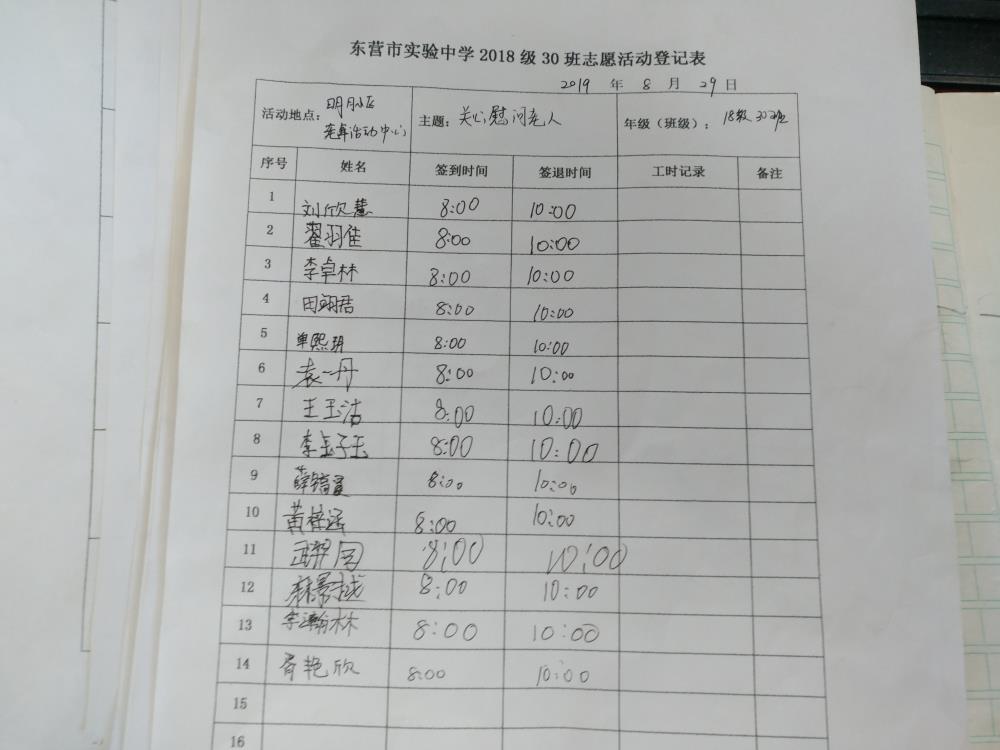 东营市实验中学2018级30班志愿活动登记表
2019 年 8 月 29 日
活动地点： 明月小区 老年活动中心 主题： 关心慰问老人 年级（班级）： 18级30班
序号 姓名 签到时间 签退时间 工时记录 备注
1 刘欣慧 8:00 10:00
2 翟羽佳 8:00 10:00
3 李卓林 8:00 10:00
4 田翊君 8:00 10:00
5 单熙玥 8:00 10:00
6 袁一丹 8:00 10:00
7 王玉洁 8:00 10:00
8 李金子玉 8:00 10:00
9 薛 8:00 10:00
10 黄梓涵 8:00 10:00
11 8:00 10:00
12 8:00 10:00
13 李瀚林 8:00 10:00
14 胥艳欣 8:00 10:00
15
16